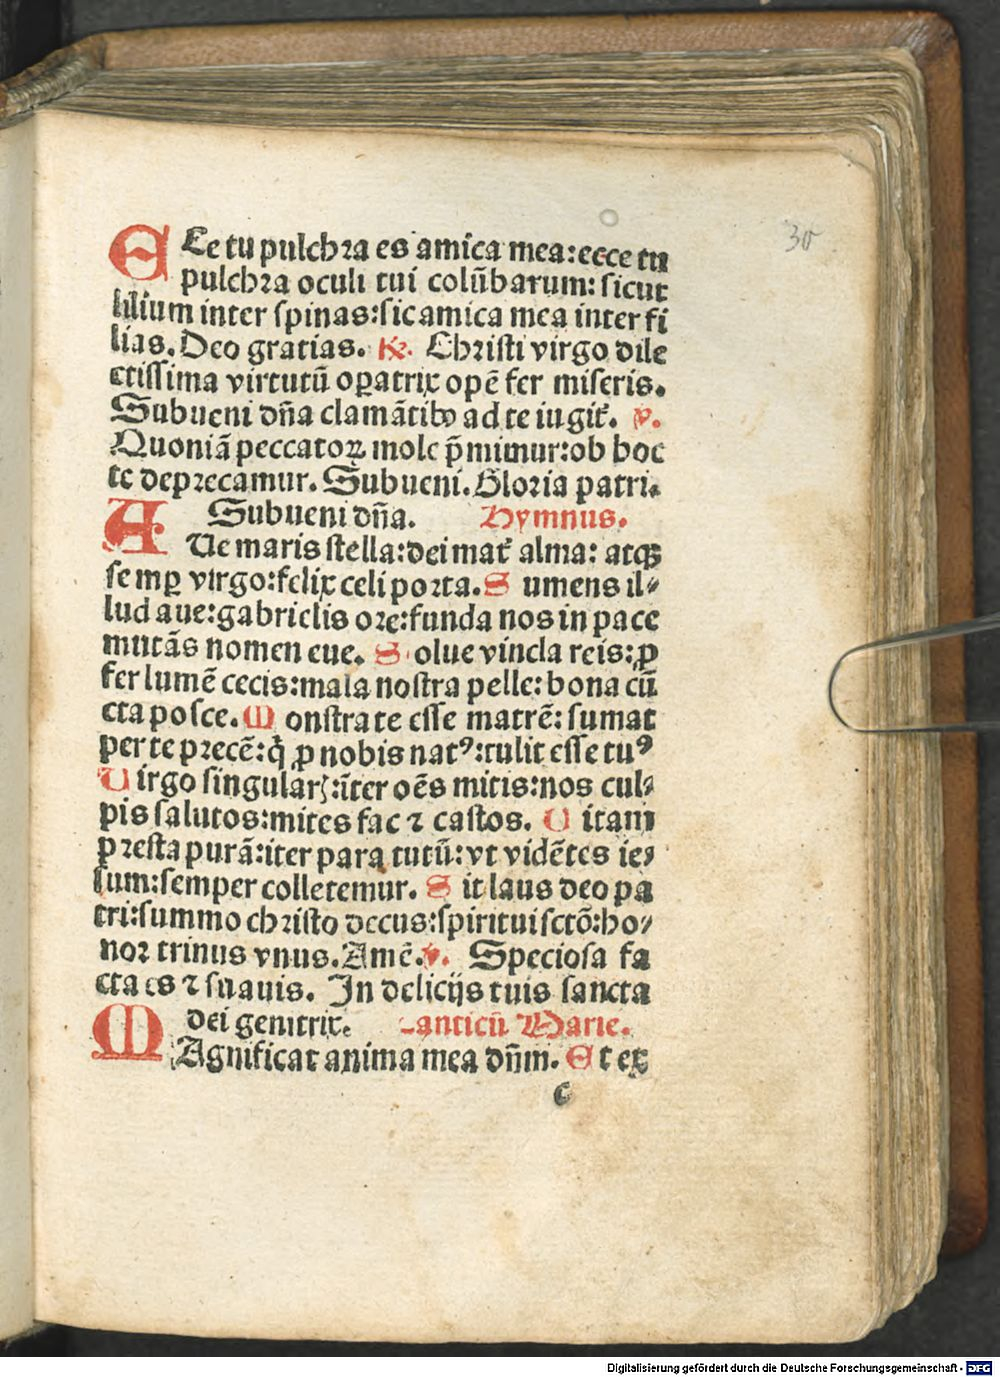 30
ECe tu pulchra es amica mea: ecce tu
pulchra oculi tui colũbarum: sicut
lilium inter spinas: sic amica mea inter fi
lias. Deo gratias. ℟. Christi virgo dile
ctissima virtutũ oꝑatrix opẽ fer miseris.
Subueni dña clamãtibꝰ ad te iugiť. ℣.
Quoniã peccatoꝝ mole p̃mimur: ob hoc
te deprecamur. Subueni. Gloria patri.
Subueni dña. Hymnus.
AUe maris stella: dei mať alma: atqꝫ
semꝑ virgo: felix celi porta. Sumens il⸗
lud aue: gabrielis ore: funda nos in pace
mutãs nomen eue. Solue vincla reis: ꝓ
fer lumẽ cecis: mala nostra pelle: bona cũ
cta posce. Monstra te esse matrẽ: sumat
per te precẽ: q̇ ꝓ nobis natꝰ: tulit esse tuꝰ
Virgo singularꝭ: ĩter oẽs mitis: nos cul⸗
pis salutos: mites fac ⁊ castos. Vitam
presta purã: iter para tutũ: vt vidẽtes ie⸗
sum: semper colletemur. Sit laus deo pa
tri: summo christo decus: spiritui sctõ: ho⸗
nor trinus vnus. Amẽ. ℣. Speciosa fa
cta es ⁊ suauis. In delicijs tuis sancta
dei genitrix. Canticũ Marie.
MAgnificat anima mea dñm. Et ex
c
Digitalisierung gefördert durch die Deutsche Forschungsgemeinschaft - DFG